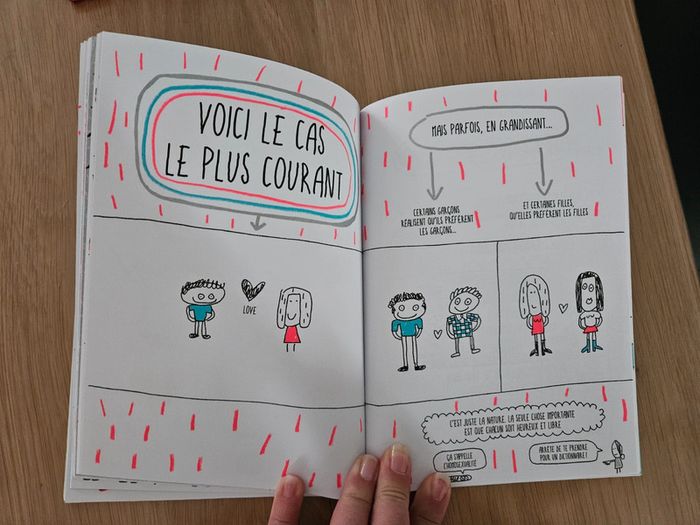 VOICI LE CAS
LE PLUS COURANT
LOVE
MAIS PARFOIS, EN GRANDISSANT...
CERTAINS GARÇONS
RÉALISENT QU'ILS PRÉFÈRENT
LES GARÇONS...
ET CERTAINES FILLES,
QU'ELLES PRÉFÈRENT LES FILLES
C'EST JUSTE LA NATURE, LA SEULE CHOSE IMPORTANTE
EST QUE CHACUN SOIT HEUREUX ET LIBRE
ÇA S'APPELLE
L'HOMOSEXUALITÉ
ARRÊTE DE TE PRENDRE
POUR UN DICTIONNAIRE !